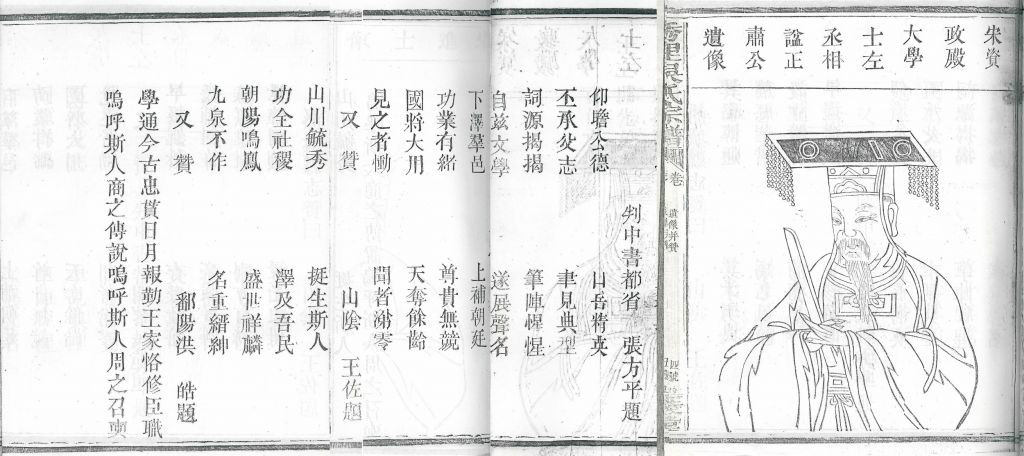 宋資
政殿
大學
士左
丞相
諡正
肅公
遺像
里吳氏宗譜 卷 遺像并贊
判中書都省 張方平題
仰瞻公德 山岳精英
丕承父志 聿見典型
詞源揭揭 筆陣惺惺
自茲文學 遂展聲名
下澤羣邑 上補朝廷
功業有緒 尊貴無競
國將大用 天奪餘齡
見之者慟 聞者淚零
又贊 山陰 王佐題
山川毓秀 挺生斯人
功全社稷 澤及吾民
朝陽鳴鳳 盛世祥麟
九泉不作 名重縉紳
又贊 鄱陽洪 皓題
學通今古忠貫日月報勤王家恪修臣職
嗚呼斯人商之傳說嗚呼斯人周之召奭